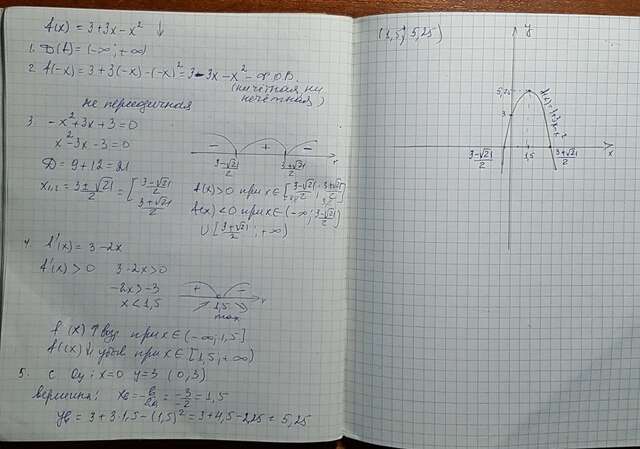 f(x) = 3+3x-x² ↓
1. D(f) = (-∞; +∞)
2. f(-x) = 3+3(-x)-(-x)² = 3-3x-x² - ф.О.В.
(ни чётная ни нечётная)
не периодичная
3. -x²+3x+3=0
x²-3x-3=0
D = 9+12 = 21
x₁,₂ = (3±√21)/2 = [ (3-√21)/2
(3+√21)/2
- + -
(3-√21)/2 (3+√21)/2 x
f(x)>0 при x∈[(3-√21)/2; (3+√21)/2]
f(x)<0 при x∈(-∞; (3-√21)/2]
∪[(3+√21)/2; +∞)
4. f'(x) = 3-2x
f'(x)>0 3-2x>0
-2x>-3
x<1,5
+ -
1,5 x
max
f(x)↑ возр при x∈(-∞; 1,5]
f(x)↓ убыв при x∈[1,5; +∞)
5. с Oy: x=0 y=3 (0,3)
вершина: xв = -b/2a = -3/-2 = 1,5
yв = 3+3·1,5-(1,5)² = 3+4,5-2,25 = 5,25
(1,5; 5,25)
y
5,25
f(x)=3+3x-x²
3
x
(3-√21)/2 1,5 (3+√21)/2